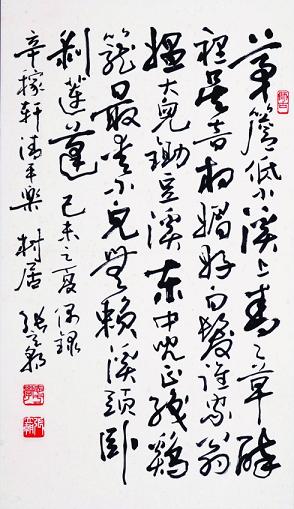 茅簷低小溪上青々草醉
裡吴音相媚好白髮誰家翁
媪大兒鋤豆溪東中兒正織鷄
籠最喜小兒無賴溪頭卧
剥蓮蓬 己未之夏偶録
辛稼軒清平樂 村居